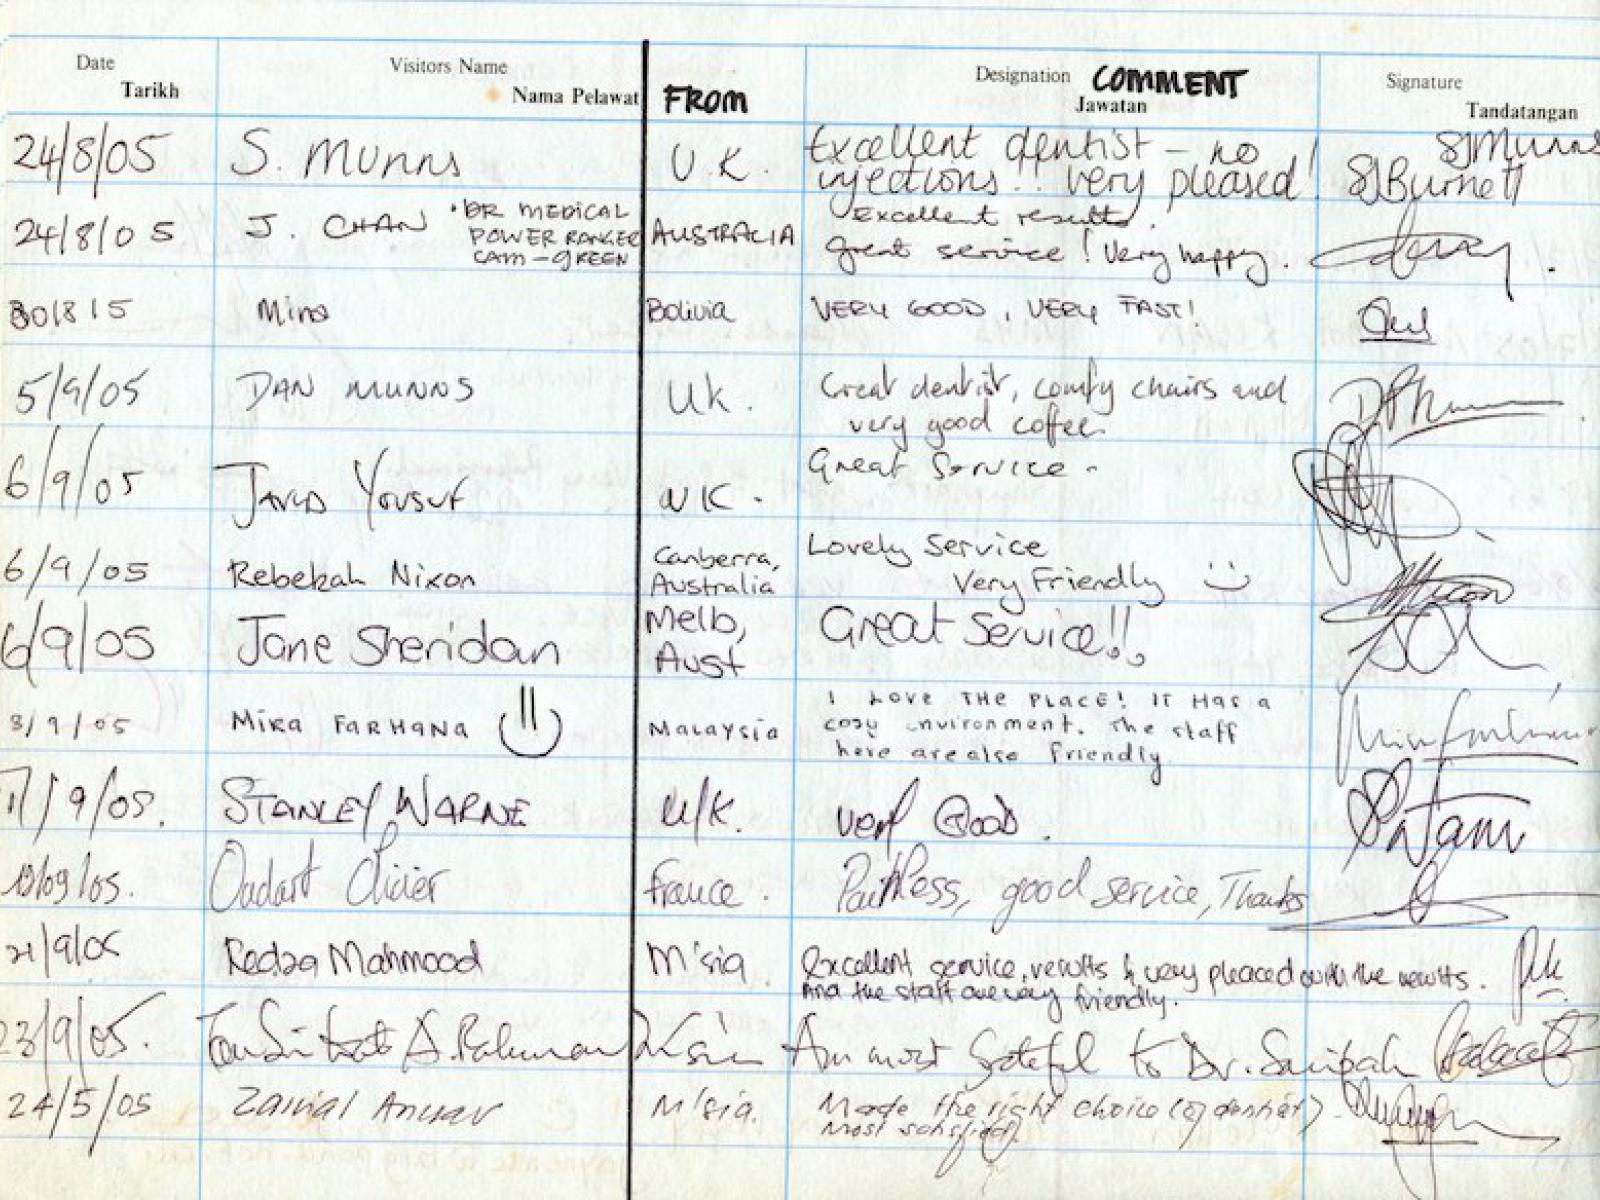 Date Visitors Name Designation COMMENT Signature
Tarikh Nama Pelawat FROM Jawatan Tandatangan
24/8/05 S. MUNNS U.K. Excellent dentist – no injections.. very pleased! SJMunns
SJBurnett
24/8/05 J. CHAN •DR MEDICAL AUSTRALIA Excellent results.
POWER RANGER Great service! Very happy.
CAM – GREEN
30/8 15 Bolivia VERY GOOD, VERY FAST!
5/9/05 DAN MUNNS Uk. Great dentist, comfy chairs and
very good coffee.
6/9/05 JAVID YOUSUF UK. Great Service -
6/9/05 Rebekah Nixon Canberra, Lovely Service
Australia Very Friendly
6/9/05 Jane Sheridan Melb, Great Service!!
Aust
8/9/05 MIRA FARHANA MALAYSIA I LOVE THE PLACE! IT HAS A
cosy environment. The staff
here are also friendly
/9/05. STANLEY WARNE U/K. very Good.
/09/05. Oudart Olivier France. Painless, good service, Thanks
21/9/05 Redza Mahmood M'sia Excellent service, results & very pleaced with the results.
And the staff are very friendly.
23/9/05. A. Rahman M'sia Am most grateful to Dr.
24/5/05 Zainal Anuar M'sia. Made the right choice (of dentist).
Most satisfied.